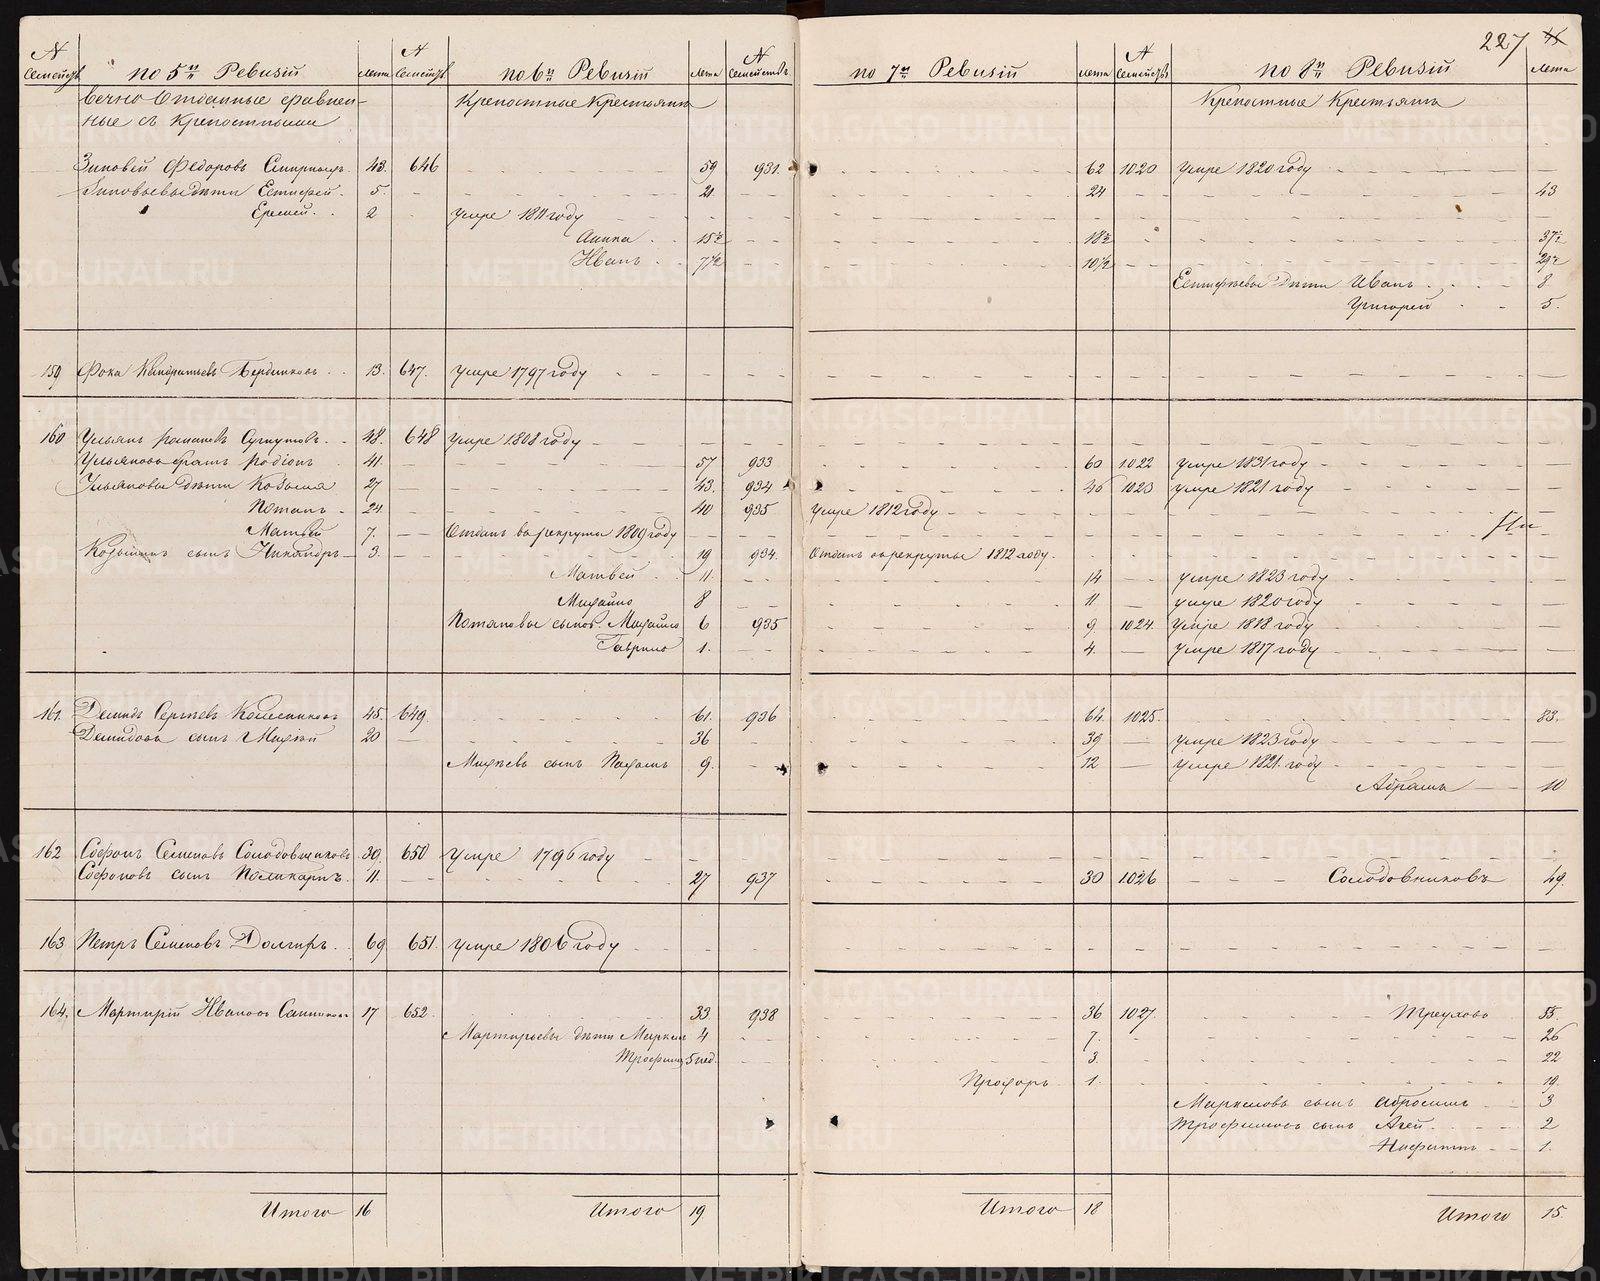 227
№ Семейств по 5й Ревизіи лета № Семейств по 6й Ревизіи лета № Семействъ по 7й Ревизіи лета № Семействъ по 8й Ревизіи лета
вечно Отданные сравнен- Крепостные Крестьяна Крепостные Крестьяна
ные съ Крепостными
Зиновей Федоровъ 43. 646 59 931. 62 1020 Умре 1820 году
Зиновьевы дети Естифей. 5. 21 24 43
Еремей. 2 Умре 1811 году
Аника 15½ 18½ 37½
Иванъ 7½ 10½ 29½
Естифеевы Дети Иванъ 8
Григорей 5.
159 Фока Кондратьевъ Бердниковъ 13. 647. Умре 1797 году
160 Ульянъ Романовъ 48. 648 Умре 1808 году
Ульяновъ братъ Родіонъ 41. 57 933 60 1022 Умре 1831 году
Ульяновы Дети Козьма 27 43. 934 46 1023 Умре 1821 году
Потапъ 24 40 935 Умре 1812 году
Матвей 7. Отданъ в рекруты 1809 году
Козьминъ сынъ Никандръ 3. 19 934. Отданъ в рекруты 1812 году.
Матвей 11. 14 Умре 1823 году
Михайло 8 11 Умре 1820 году
Потаповы сынов. Михайло 6 935 9 1024 Умре 1818 году
Гаврило 1. 4. Умре 1817 году
161. Демидъ Сергеевъ Колесниковъ 45. 649 61. 936 64. 1025. 83.
Демидовъ сынъ Михей 20 36 39 Умре 1823 году
Михеевъ сынъ Пахомъ 9. 12 Умре 1821. году
Абрамъ 10
162 Софонъ Семеновъ Солодовниковъ 30. 650 Умре 1796 году
Софоновъ сынъ Поликарпъ. 11. 27 937 30 1026 Солодовниковъ 49.
163 Петръ Семеновъ 69 651. Умре 1806 году
164. Мартирій Ивановъ Санниковъ 17 652. 33 938 36 1027. 55.
Мартирьевы дети Меркелъ 4 7. 26
Трофимъ 5 нед. 3. 22
Прохоръ 1. 19.
Меркеловъ сынъ Абросимъ 3
Трофимовъ сынъ Агей. 2
1.
Итого 16 Итого 19 Итого 18 Итого 15.
METRIKI.GASO-URAL.RU